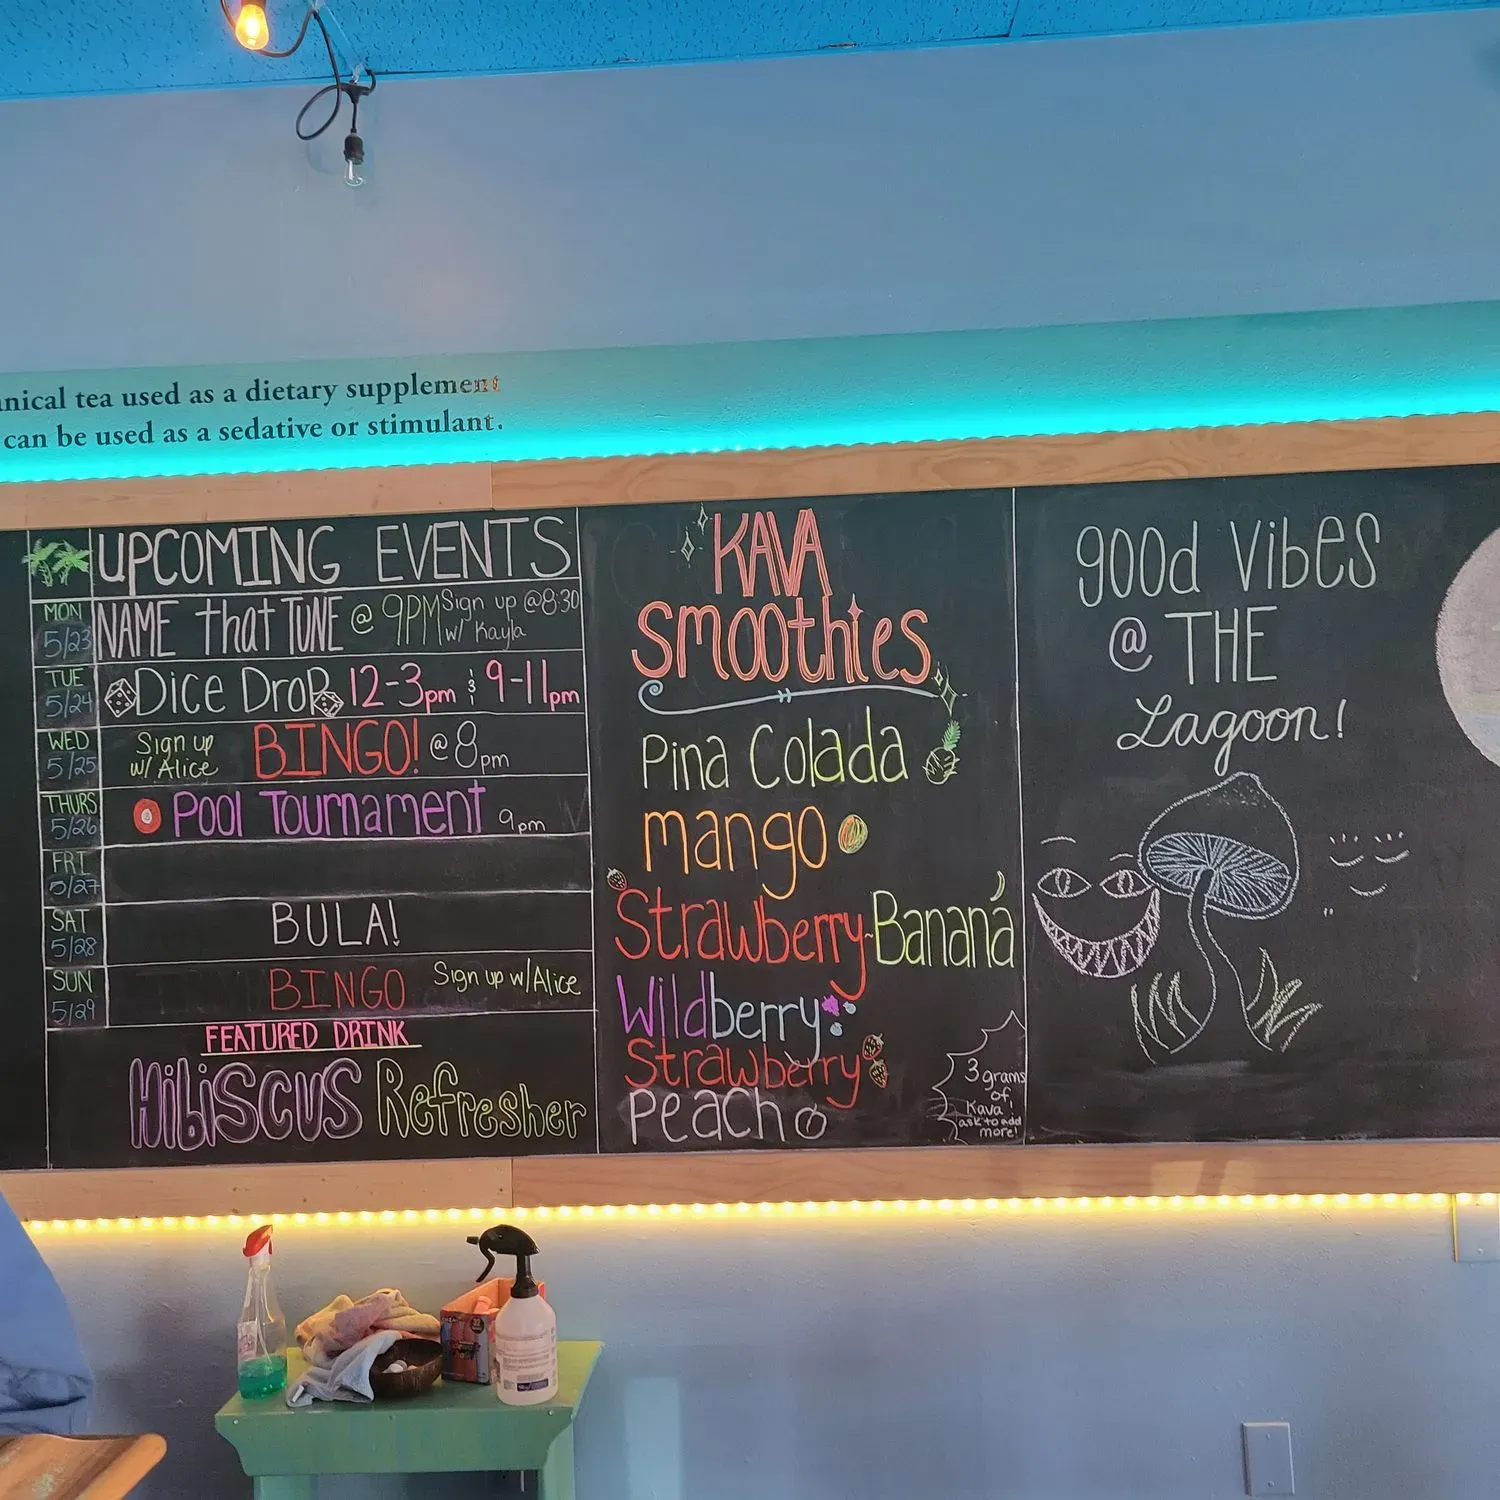 nical tea used as a dietary supplement
can be used as a sedative or stimulant.
UPCOMING EVENTS
MON 5/23 NAME that TUNE @ 9PM Sign up @8:30 w/ Kayla
TUE 5/24 Dice Drop 12-3pm & 9-11pm
WED 5/25 Sign up w/ Alice BINGO! @ 8pm
THURS 5/26 Pool Tournament 9pm
FRI 5/27
SAT 5/28 BULA!
SUN 5/29 BINGO Sign up w/Alice
FEATURED DRINK
Hibiscus Refresher
KAVA
Smoothies
Pina Colada
mango
Strawberry-Banana
Wildberry
Strawberry
Peach
3 grams
of
Kava!
ask to add
more!
good vibes
@ THE
Lagoon!